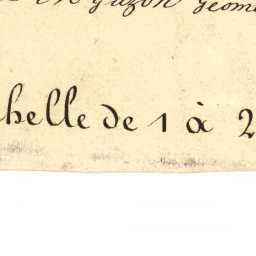 en gazon géom
helle de 1 à 2